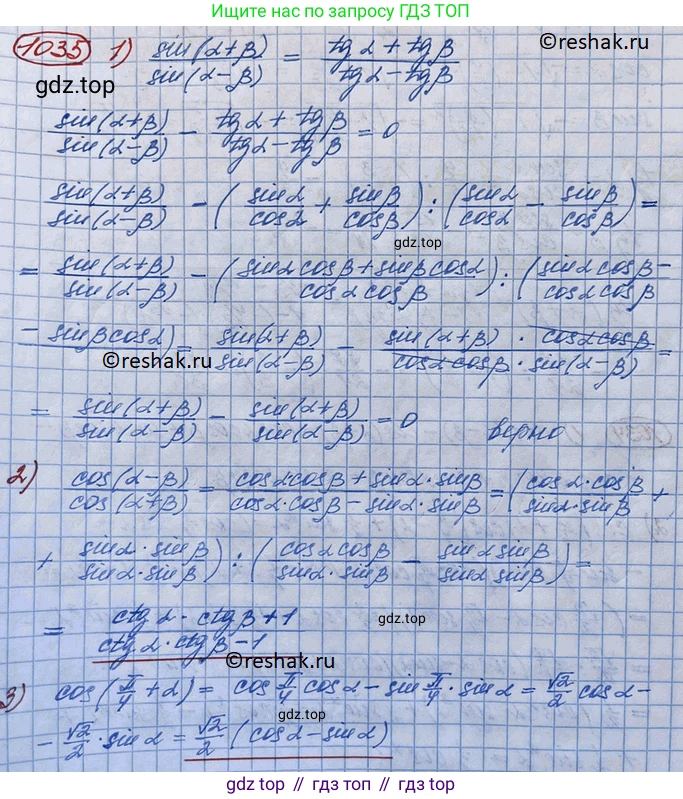 Ищите нас по запросу ГДЗ ТОП
1035 1) sin(α+β)/sin(α−β) = (tgα + tgβ)/(tgα − tgβ) ©reshak.ru
gdz.top
sin(α+β)/sin(α−β) − (tgα + tgβ)/(tgα − tgβ) = 0
sin(α+β)/sin(α−β) − (sinα/cosα + sinβ/cosβ) : (sinα/cosα − sinβ/cosβ) =
gdz.top
= sin(α+β)/sin(α−β) − ((sinα cosβ + sinβ cosα)/(cosα cosβ)) : (sinα cosβ −/cosα cosβ
− sinβ cosα) = sin(α+β)/sin(α−β) − (sin(α+β) · cosα cosβ)/(cosα cosβ · sin(α−β)) =
©reshak.ru
= sin(α+β)/sin(α−β) − sin(α+β)/sin(α−β) = 0 верно
2) cos(α−β)/cos(α+β) = (cosα·cosβ + sinα·sinβ)/(cosα·cosβ − sinα·sinβ) = (cosα·cosβ/sinα·sinβ +
+ sinα·sinβ/sinα·sinβ) : (cosα cosβ/sinα·sinβ − sinα sinβ/sinα sinβ) =
= (ctgα · ctgβ + 1)/(ctgα · ctgβ − 1)
gdz.top
©reshak.ru
3) cos(π/4 + α) = cos π/4 cosα − sin π/4 · sinα = √2/2 cosα −
− √2/2 · sinα = √2/2 (cosα − sinα)
gdz.top
gdz top // гдз топ // gdz.top